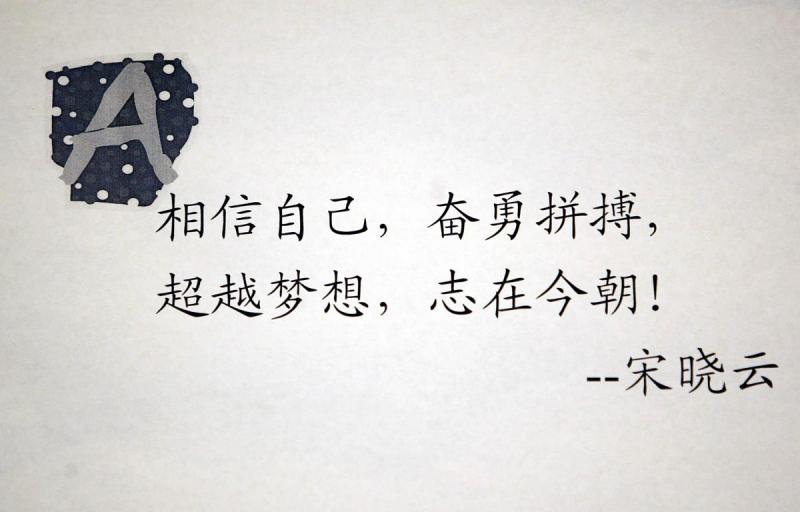 A
相信自己，奋勇拼搏，
超越梦想，志在今朝！
--宋晓云